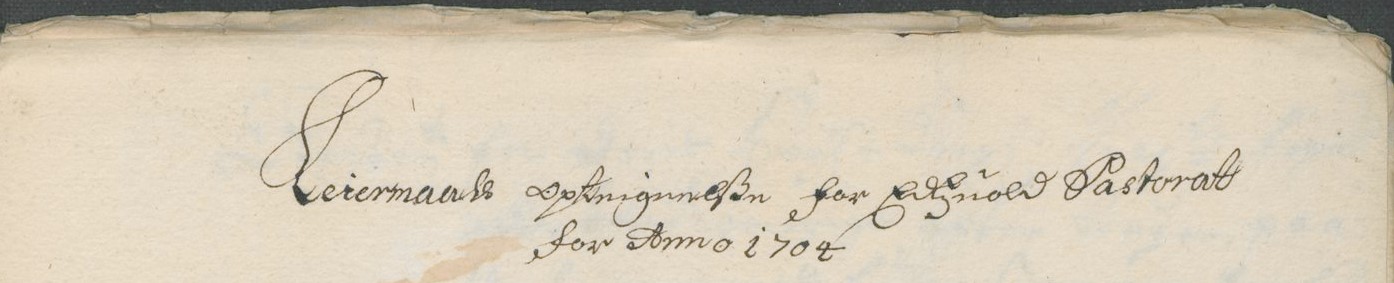 Leiermaals optteignelsse for Edtzuold Pastoratt
for Anno 1704